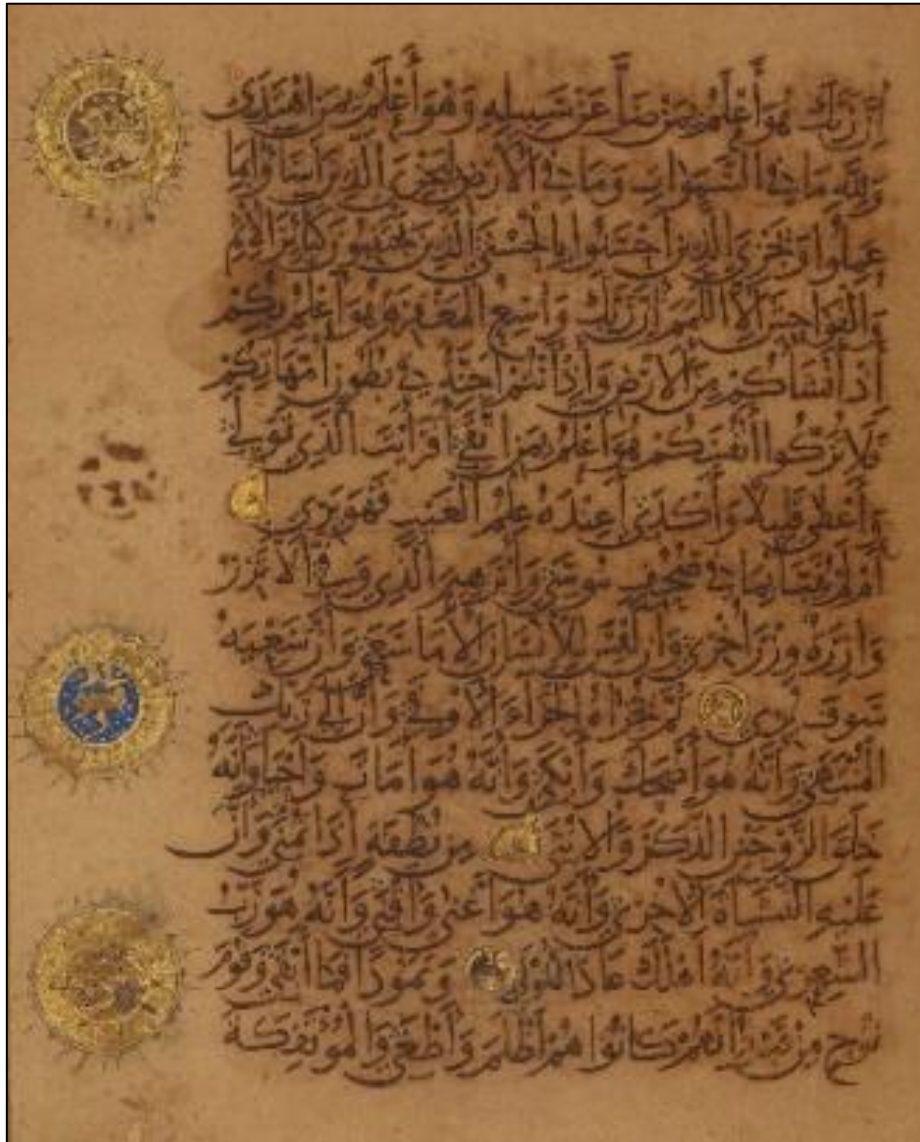 إن ربك هو أعلم بمن ضل عن سبيله وهو أعلم بمن اهتدى
ولله ما في السموات وما في الأرض ليجزي الذين أساؤا بما
عملوا ويجزي الذين أحسنوا بالحسنى الذين يجتنبون كبائر الإثم
والفواحش إلا اللمم إن ربك واسع المغفرة هو أعلم بكم
إذ أنشأكم من الأرض وإذ أنتم أجنة في بطون أمهاتكم
فلا تزكوا أنفسكم هو أعلم بمن اتقى أفرأيت الذي تولى
وأعطى قليلا وأكدى أعنده علم الغيب فهو يرى
أم لم ينبأ بما في صحف موسى وإبرهيم الذي وفى ألا تزر
وازرة وزر أخرى وأن ليس للإنسان إلا ما سعى وأن سعيه
سوف يرى ثم يجزاه الجزاء الأوفى وأن إلى ربك
المنتهى وأنه هو أضحك وأبكى وأنه هو أمات وأحيا وأنه
خلق الزوجين الذكر والأنثى من نطفة إذا تمنى وأن
عليه النشأة الأخرى وأنه هو أغنى وأقنى وأنه هو رب
الشعرى وأنه أهلك عادا الأولى وثمودا فما أبقى وقوم
نوح من قبل إنهم كانوا هم أظلم وأطغى والمؤتفكة